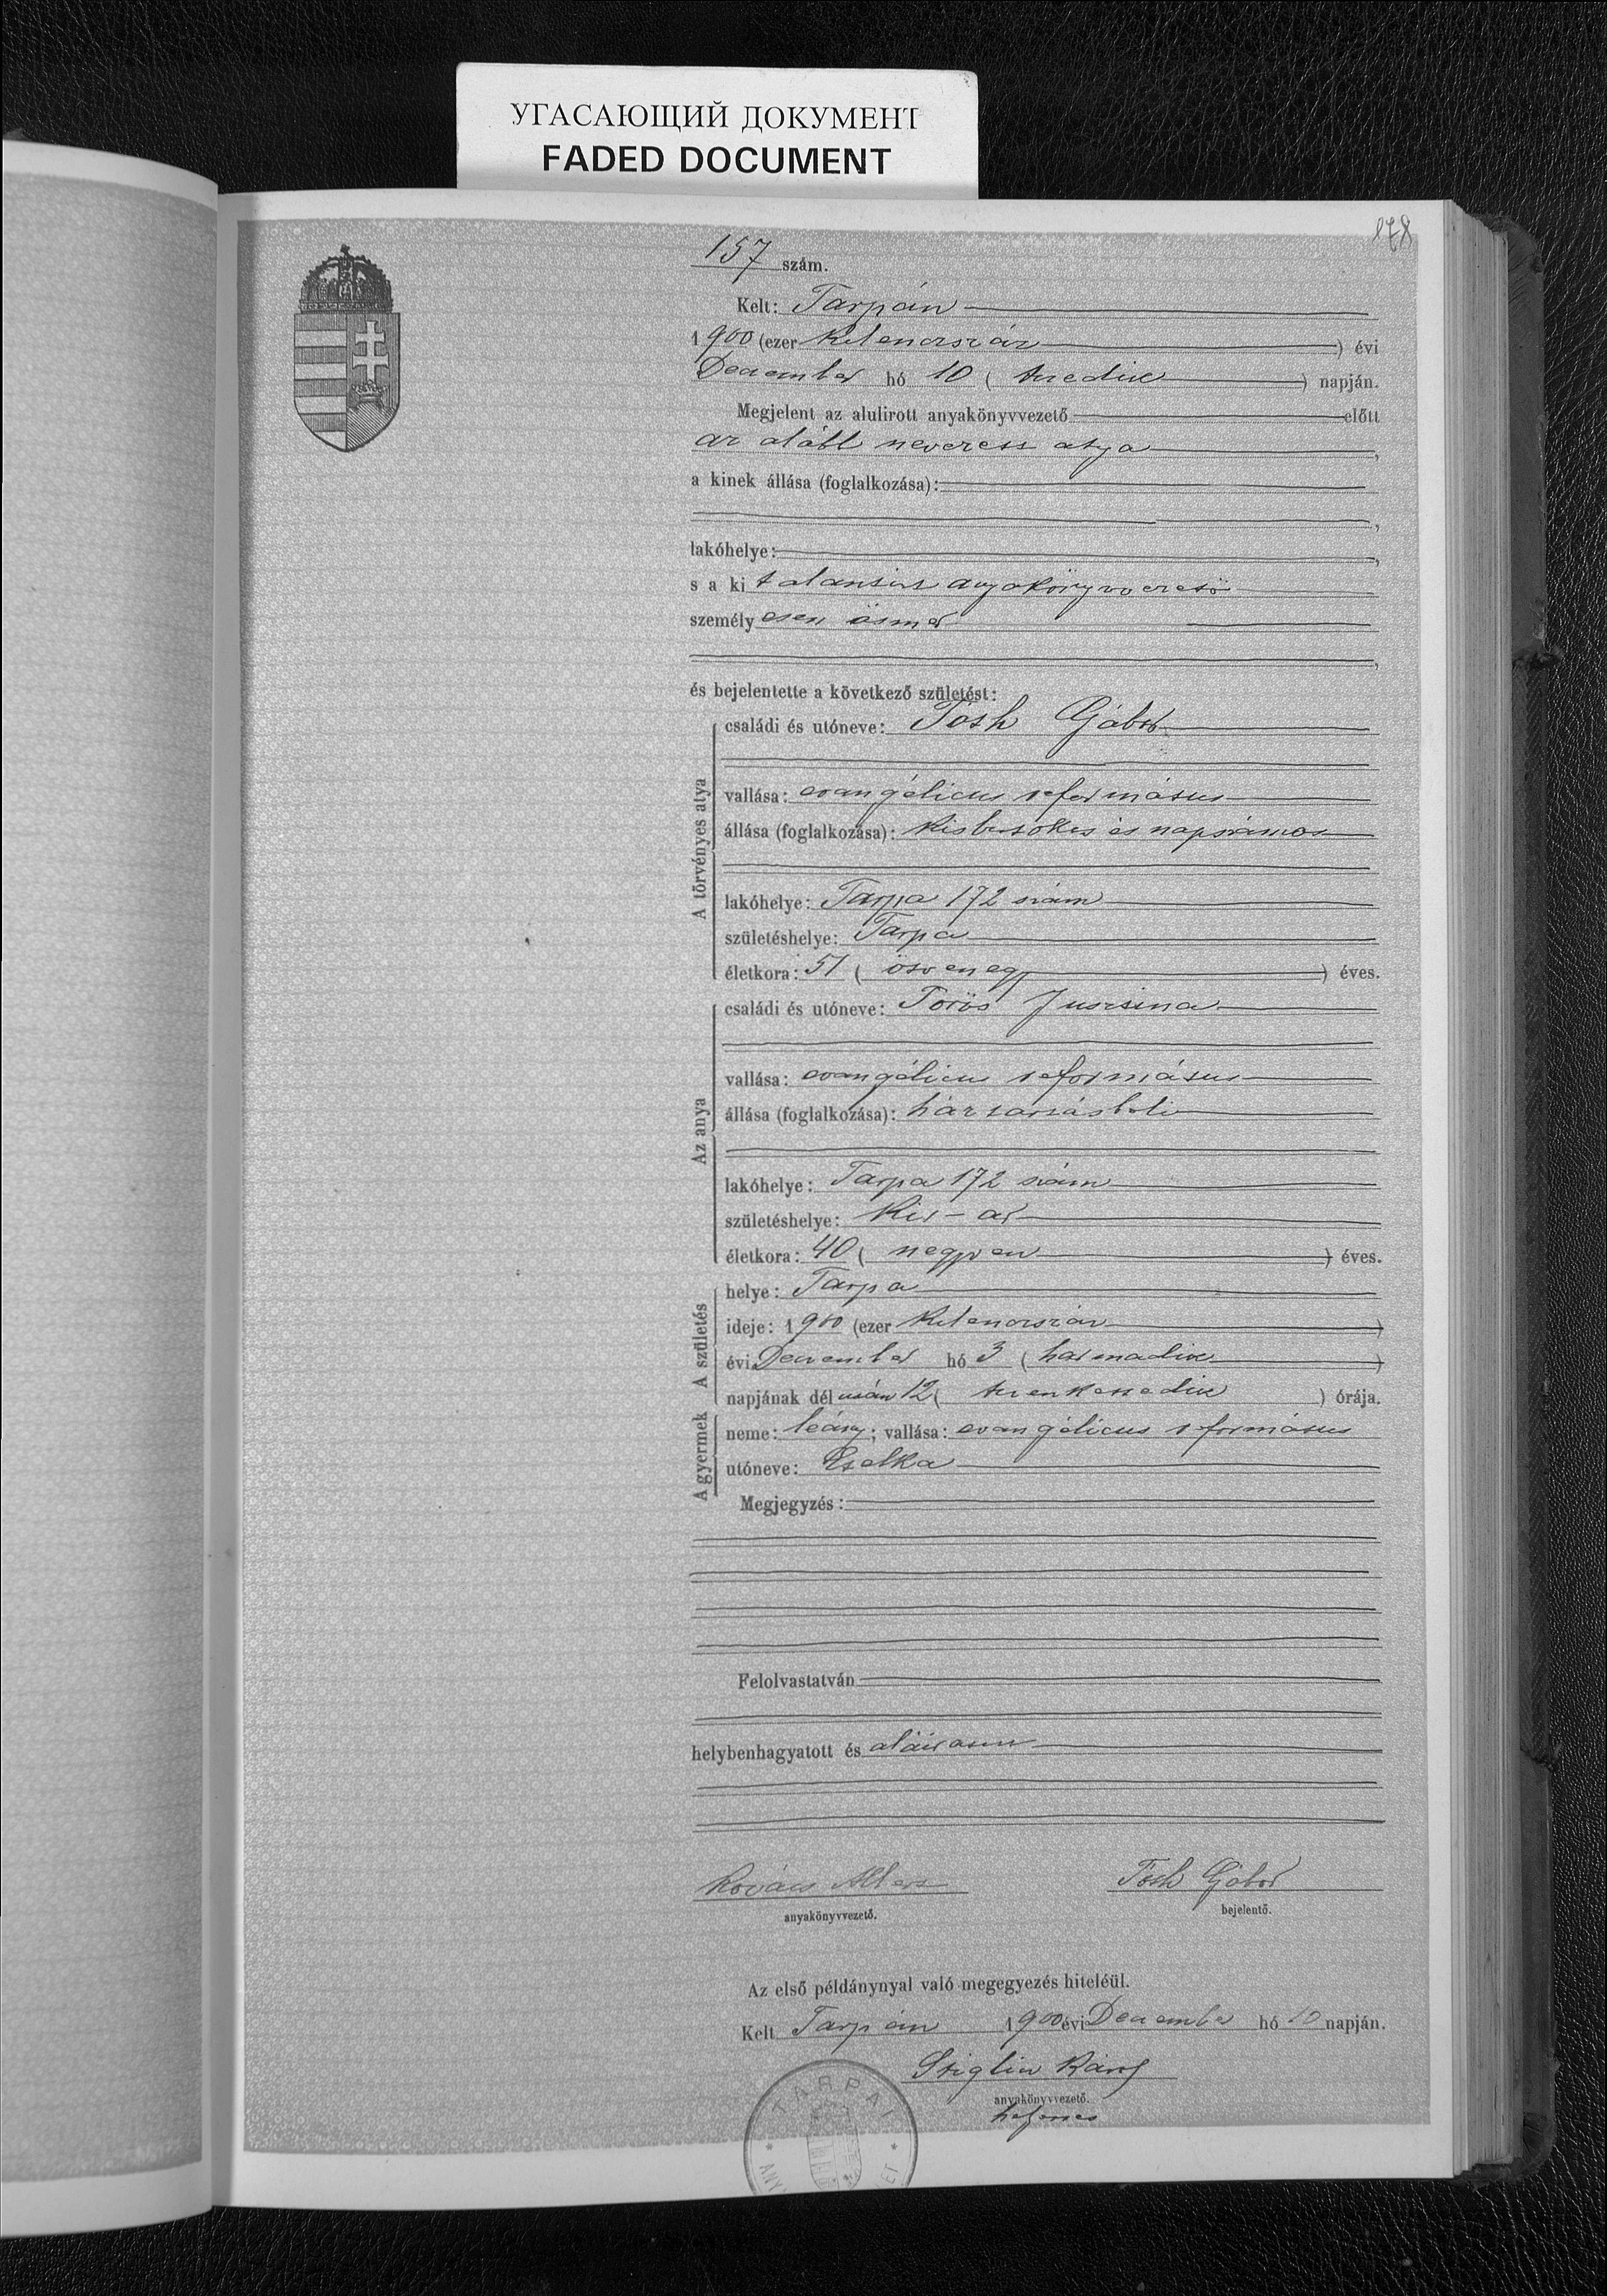 УГАСАЮЩИЙ ДОКУМЕНТ
FADED DOCUMENT
178
157 szám.
Kelt: Tarpán
1900 (ezer kilenczszáz) évi
December hó 10 (tizedik) napján.
Megjelent az alulirott anyakönyvvezető előtt
az alább nevezett atya,
a kinek állása (foglalkozása):
lakóhelye:
s a kit alantirt anyakönyvvezető
személyesen ösmer
és bejelentette a következő születést:
A törvényes atya
családi és utóneve: Tóth Gábor
vallása: evangélicus református
állása (foglalkozása): kisbirtokos és napszámos
lakóhelye: Tarpa 172 szám
születéshelye: Tarpa
életkora: 51 (ötvenegy) éves.
Az anya
családi és utóneve: Törös Juszina
vallása: evangélicus református
állása (foglalkozása): háztartásbeli
lakóhelye: Tarpa 172 szám
születéshelye: Kis-ar
életkora: 40 (negyven) éves.
A születés
helye: Tarpa
ideje: 1900 (ezer kilenczszáz)
évi December hó 3 (harmadik)
napjának dél után 12 (tizenkettedik) órája.
A gyermek
neme: leány; vallása: evangélicus református
utóneve: Etelka
Megjegyzés:
Felolvastatván
helybenhagyatott és aláiratott
Kovács Albert Tóth Gábor
anyakönyvvezető. bejelentő.
Az első példánynyal való megegyezés hiteléül.
Kelt Tarpán 1900 évi December hó 10 napján.
Stiglin Károly
anyakönyvvezető.
helyettes
TARPAI